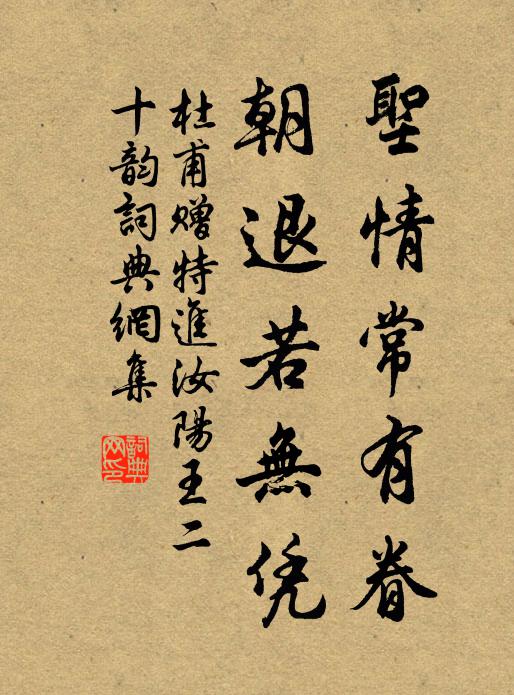 聖情常有眷
朝退若無凭
杜甫贈特進汝陽王二
十韵詞典網集
詞典
网印